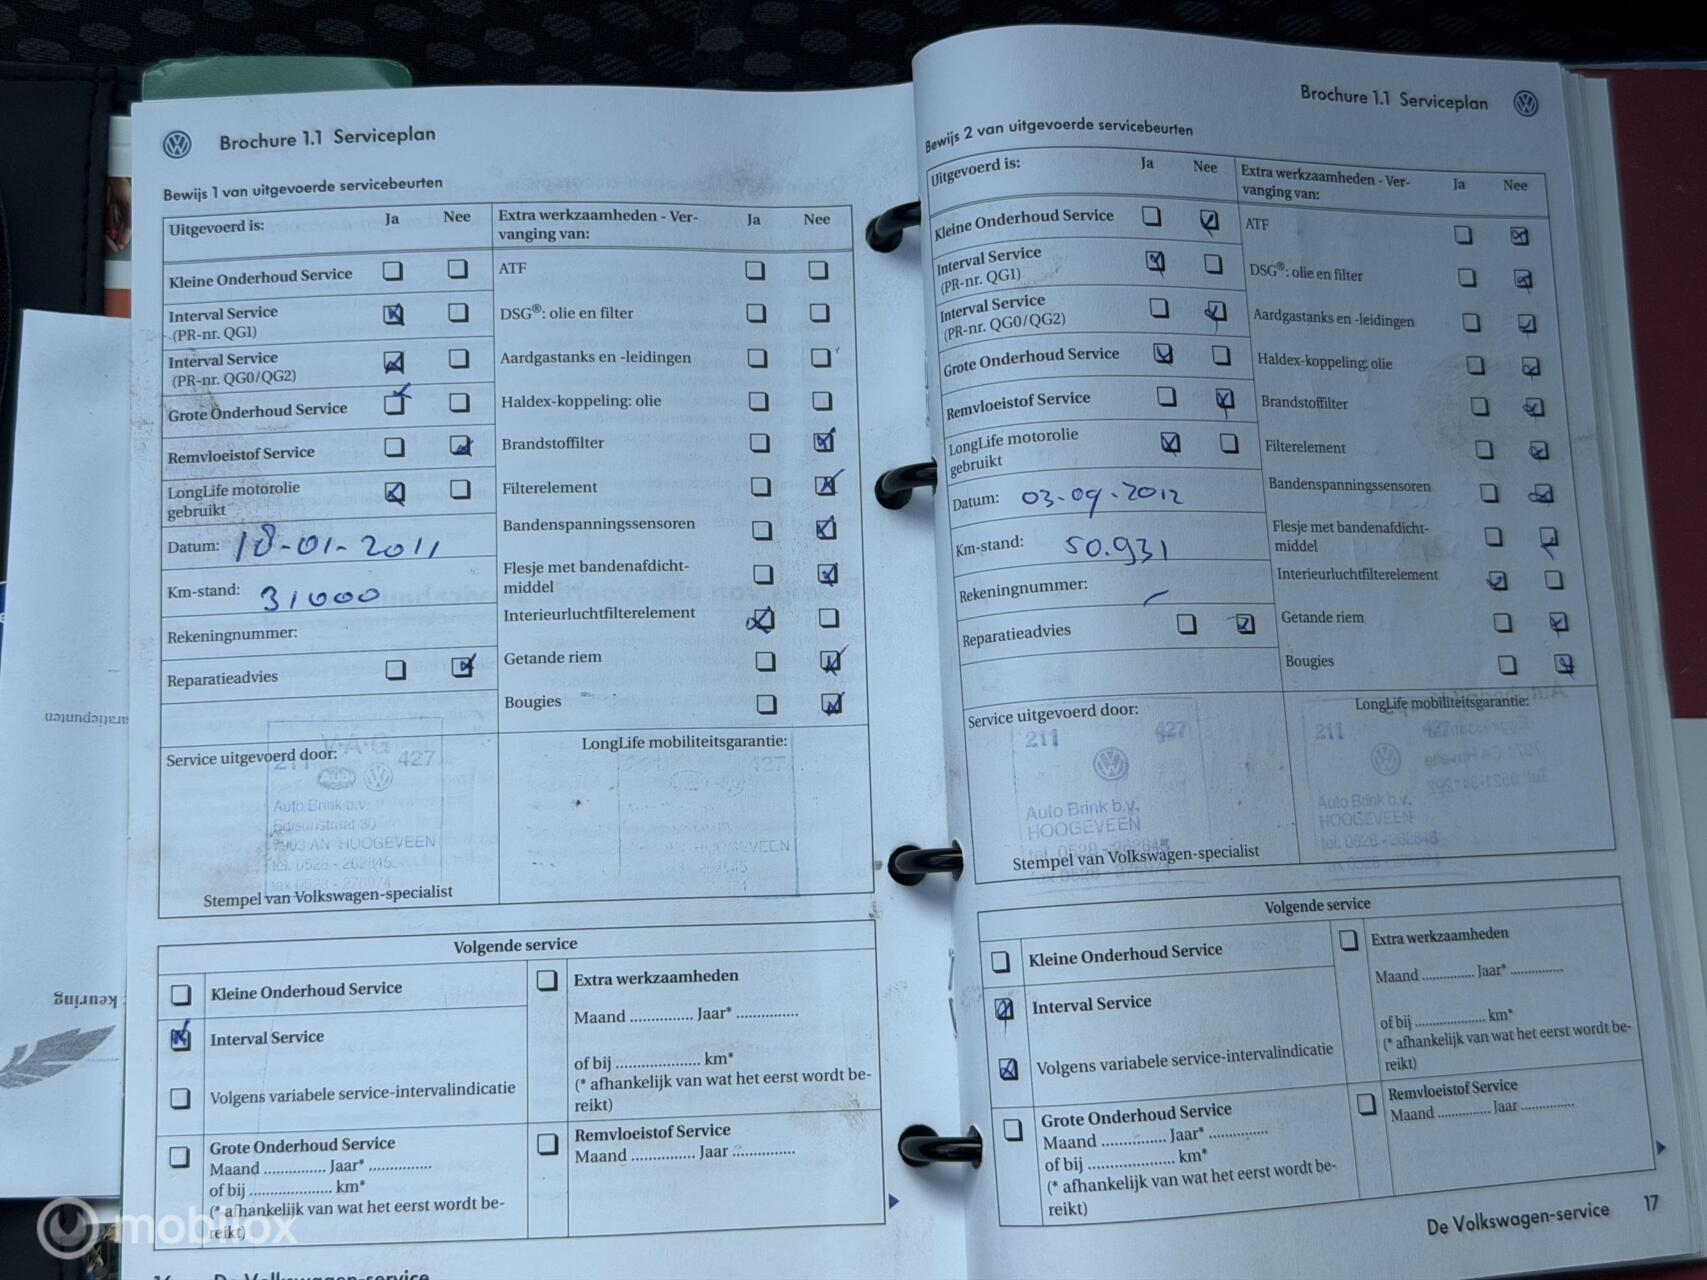 Brochure 1.1 Serviceplan
Bewijs 1 van uitgevoerde servicebeurten
Uitgevoerd is: Ja Nee
Kleine Onderhoud Service
Interval Service
(PR-nr. QG1)
Interval Service
(PR-nr. QG0/QG2)
Grote Onderhoud Service
Remvloeistof Service
LongLife motorolie
gebruikt
Datum: 18-01-2011
Km-stand: 31000
Rekeningnummer:
Reparatieadvies
Extra werkzaamheden - Ver-
vanging van: Ja Nee
ATF
DSG®: olie en filter
Aardgastanks en -leidingen
Haldex-koppeling: olie
Brandstoffilter
Filterelement
Bandenspanningssensoren
Flesje met bandenafdicht-
middel
Interieurluchtfilterelement
Getande riem
Bougies
Service uitgevoerd door:
V·A·G
211 427
Auto Brink b.v.
7903 AN HOOGEVEEN
tel. 0528 - 262845
fax 0528 - 276974
Stempel van Volkswagen-specialist
LongLife mobiliteitsgarantie:
Volgende service
Kleine Onderhoud Service
Interval Service
Volgens variabele service-intervalindicatie
Grote Onderhoud Service
Maand ............... Jaar* ...............
of bij .................... km*
(* afhankelijk van wat het eerst wordt be-
reikt)
Extra werkzaamheden
Maand ............... Jaar* ...............
of bij .................... km*
(* afhankelijk van wat het eerst wordt be-
reikt)
Remvloeistof Service
Maand ............... Jaar ...............
De Volkswagen-service
Brochure 1.1 Serviceplan
Bewijs 2 van uitgevoerde servicebeurten
Uitgevoerd is: Ja Nee
Kleine Onderhoud Service
Interval Service
(PR-nr. QG1)
Interval Service
(PR-nr. QG0/QG2)
Grote Onderhoud Service
Remvloeistof Service
LongLife motorolie
gebruikt
Datum: 03-09-2012
Km-stand: 50.931
Rekeningnummer:
Reparatieadvies
Extra werkzaamheden - Ver-
vanging van: Ja Nee
ATF
DSG®: olie en filter
Aardgastanks en -leidingen
Haldex-koppeling: olie
Brandstoffilter
Filterelement
Bandenspanningssensoren
Flesje met bandenafdicht-
middel
Interieurluchtfilterelement
Getande riem
Bougies
Service uitgevoerd door:
211 427
Auto Brink b.v.
HOOGEVEEN
tel. 0528 - 262845
fax 0528 - 276974
Stempel van Volkswagen-specialist
LongLife mobiliteitsgarantie:
211 427
Auto Brink b.v.
HOOGEVEEN
tel. 0528 - 262845
fax 0528 - 276974
Volgende service
Kleine Onderhoud Service
Interval Service
Volgens variabele service-intervalindicatie
Grote Onderhoud Service
Maand ............... Jaar* ...............
of bij .................... km*
(* afhankelijk van wat het eerst wordt be-
reikt)
Extra werkzaamheden
Maand ............... Jaar* ...............
of bij .................... km*
(* afhankelijk van wat het eerst wordt be-
reikt)
Remvloeistof Service
Maand ............... Jaar ...............
De Volkswagen-service 17
keuring
mobilox